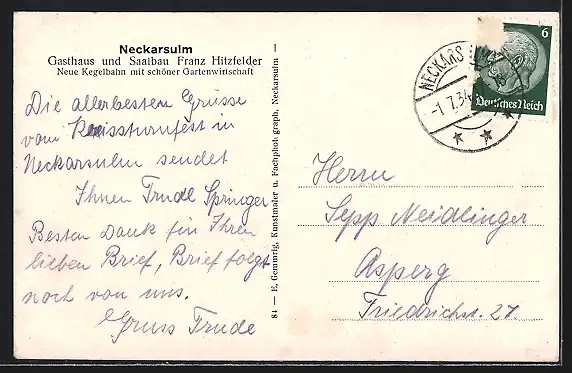 Neckarsulm
Gasthaus und Saalbau Franz Hitzfelder
Neue Kegelbahn mit schöner Gartenwirtschaft
Die allerbesten Grüsse
vom Kreisturnfest in
Neckarsulm sendet
Ihnen Trudl Springer
Besten Dank für Ihren
lieben Brief, Brief folgt
noch von uns.
Gruss Trude
84 — E. Gemmrig, Kunstmaler u. Fachphotograph, Neckarsulm —
NECKARSULM
-1.7.34
6
Deutsches Reich
Herrn
Sepp Neidlinger
Asperg
Friedrichst. 27.